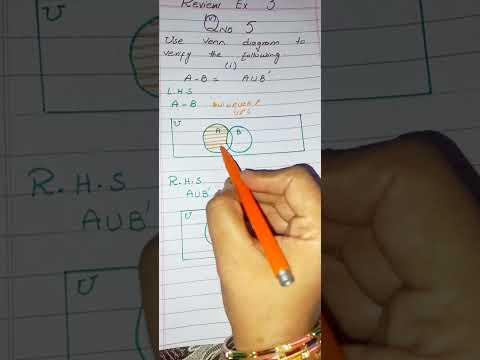 Review Ex 3
Q No 5
Use Venn diagram to
verify the following
(i)
A-B = AUB'
L.H.S
A-B
U
A B
R.H.S
AUB'
U